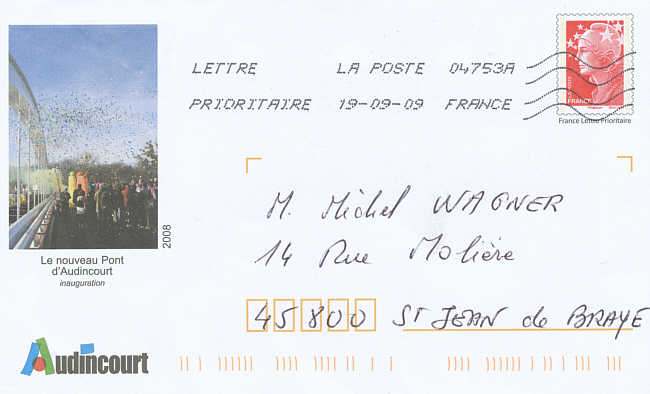 LETTRE LA POSTE 04753A
PRIORITAIRE 19-09-09 FRANCE
FRANCE
France Lettre Prioritaire
M. Michel WAGNER
14 Rue Molière
45800 ST JEAN de BRAYE
2008
Le nouveau Pont
d'Audincourt
inauguration
Audincourt